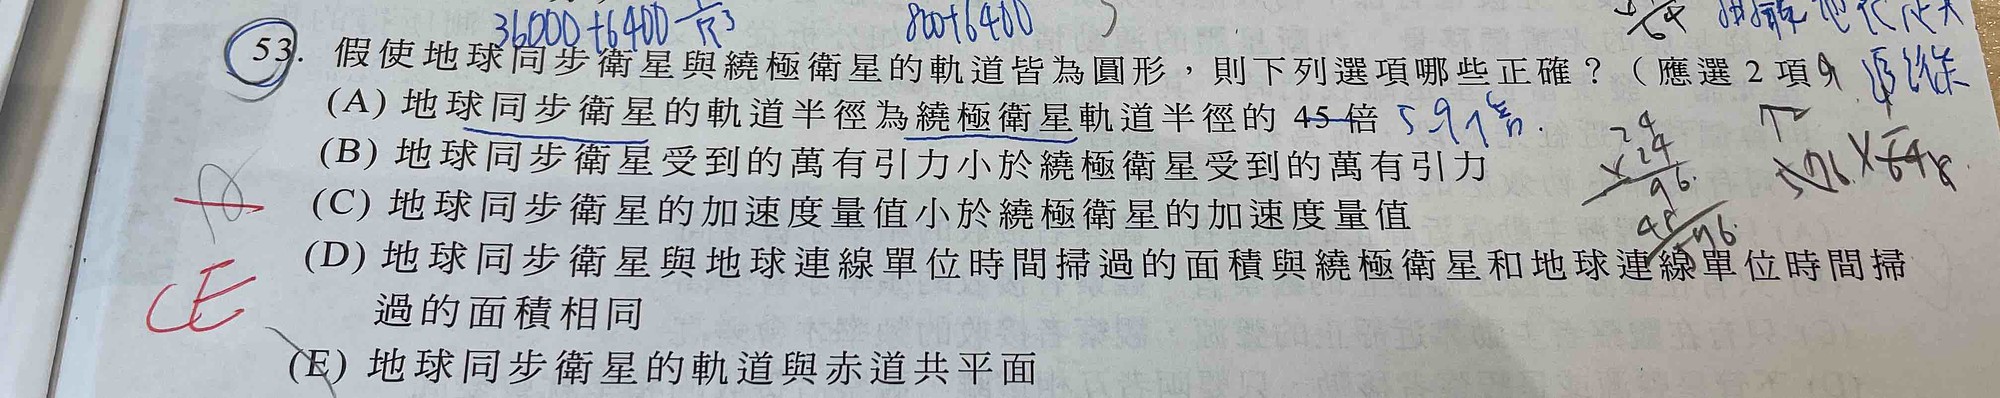 36000+6400 800+6400
53. 假使地球同步衛星與繞極衛星的軌道皆為圓形，則下列選項哪些正確？（應選2項
(A) 地球同步衛星的軌道半徑為繞極衛星軌道半徑的 45 倍 5.9倍.
(B) 地球同步衛星受到的萬有引力小於繞極衛星受到的萬有引力
(C) 地球同步衛星的加速度量值小於繞極衛星的加速度量值
(D) 地球同步衛星與地球連線單位時間掃過的面積與繞極衛星和地球連線單位時間掃
過的面積相同
(E) 地球同步衛星的軌道與赤道共平面
CE
24
×24
96